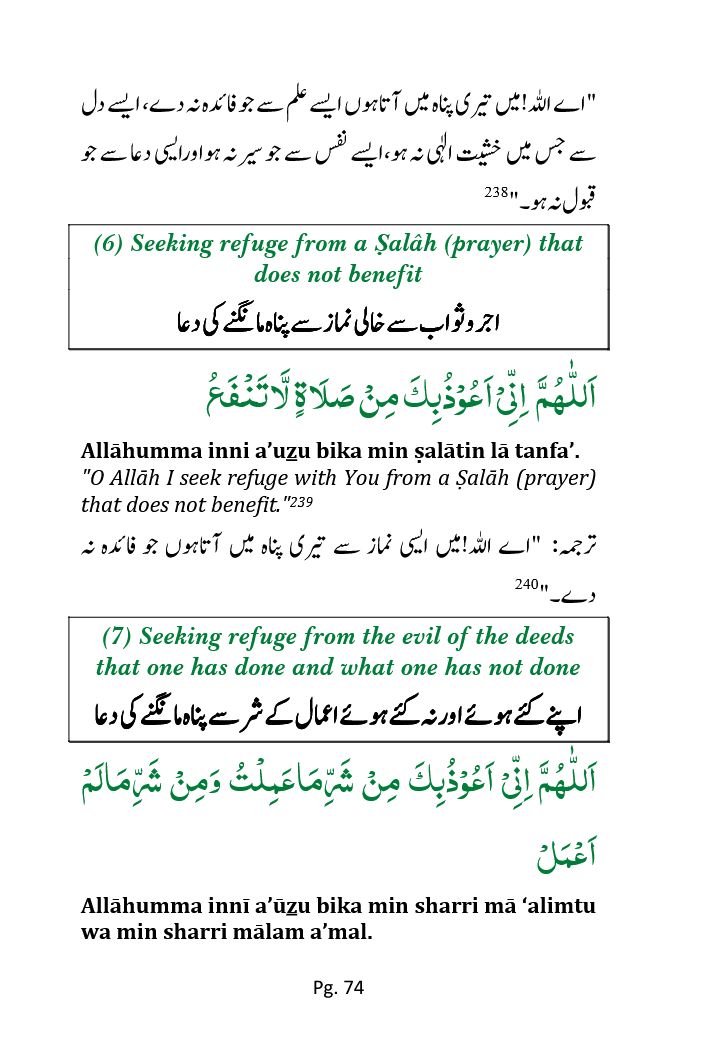 "اے اللہ! میں تیری پناہ میں آتا ہوں ایسے علم سے جو فائدہ نہ دے، ایسے دل
سے جس میں خشیت الٰہی نہ ہو، ایسے نفس سے جو سیر نہ ہو اور ایسی دعا سے جو
قبول نہ ہو۔"238
(6) Seeking refuge from a Ṣalâh (prayer) that
does not benefit
اجر و ثواب سے خالی نماز سے پناہ مانگنے کی دعا
اَللّٰهُمَّ اِنِّيْ اَعُوْذُ بِكَ مِنْ صَلَاةٍ لَّا تَنْفَعُ
Allāhumma inni a’uz̲u bika min ṣalātin lā tanfa’.
"O Allāh I seek refuge with You from a Ṣalāh (prayer)
that does not benefit."239
ترجمہ: "اے اللہ! میں ایسی نماز سے تیری پناہ میں آتا ہوں جو فائدہ نہ
دے۔"240
(7) Seeking refuge from the evil of the deeds
that one has done and what one has not done
اپنے کئے ہوئے اور نہ کئے ہوئے اعمال کے شر سے پناہ مانگنے کی دعا
اَللّٰهُمَّ اِنِّيْ اَعُوْذُ بِكَ مِنْ شَرِّ مَا عَمِلْتُ وَمِنْ شَرِّ مَا لَمْ
اَعْمَلْ
Allāhumma innī a’ūz̲u bika min sharri mā ‘alimtu
wa min sharri mālam a’mal.
Pg. 74